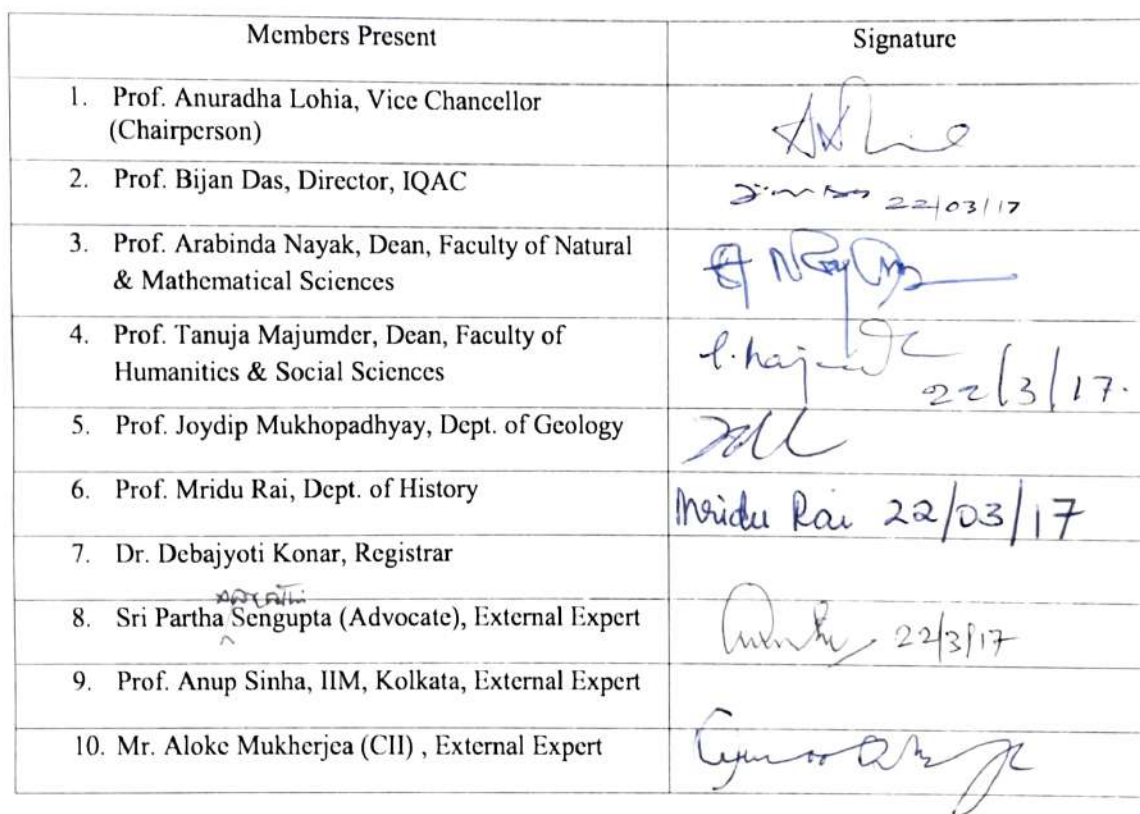 Members Present Signature
1. Prof. Anuradha Lohia, Vice Chancellor
(Chairperson)
2. Prof. Bijan Das, Director, IQAC
22/03/17
3. Prof. Arabinda Nayak, Dean, Faculty of Natural
& Mathematical Sciences
4. Prof. Tanuja Majumder, Dean, Faculty of
Humanities & Social Sciences
22/3/17.
5. Prof. Joydip Mukhopadhyay, Dept. of Geology
6. Prof. Mridu Rai, Dept. of History Mridu Rai 22/03/17
7. Dr. Debajyoti Konar, Registrar
8. Sri Partha Sengupta (Advocate), External Expert 22/3/17
9. Prof. Anup Sinha, IIM, Kolkata, External Expert
10. Mr. Aloke Mukherjea (CII) , External Expert